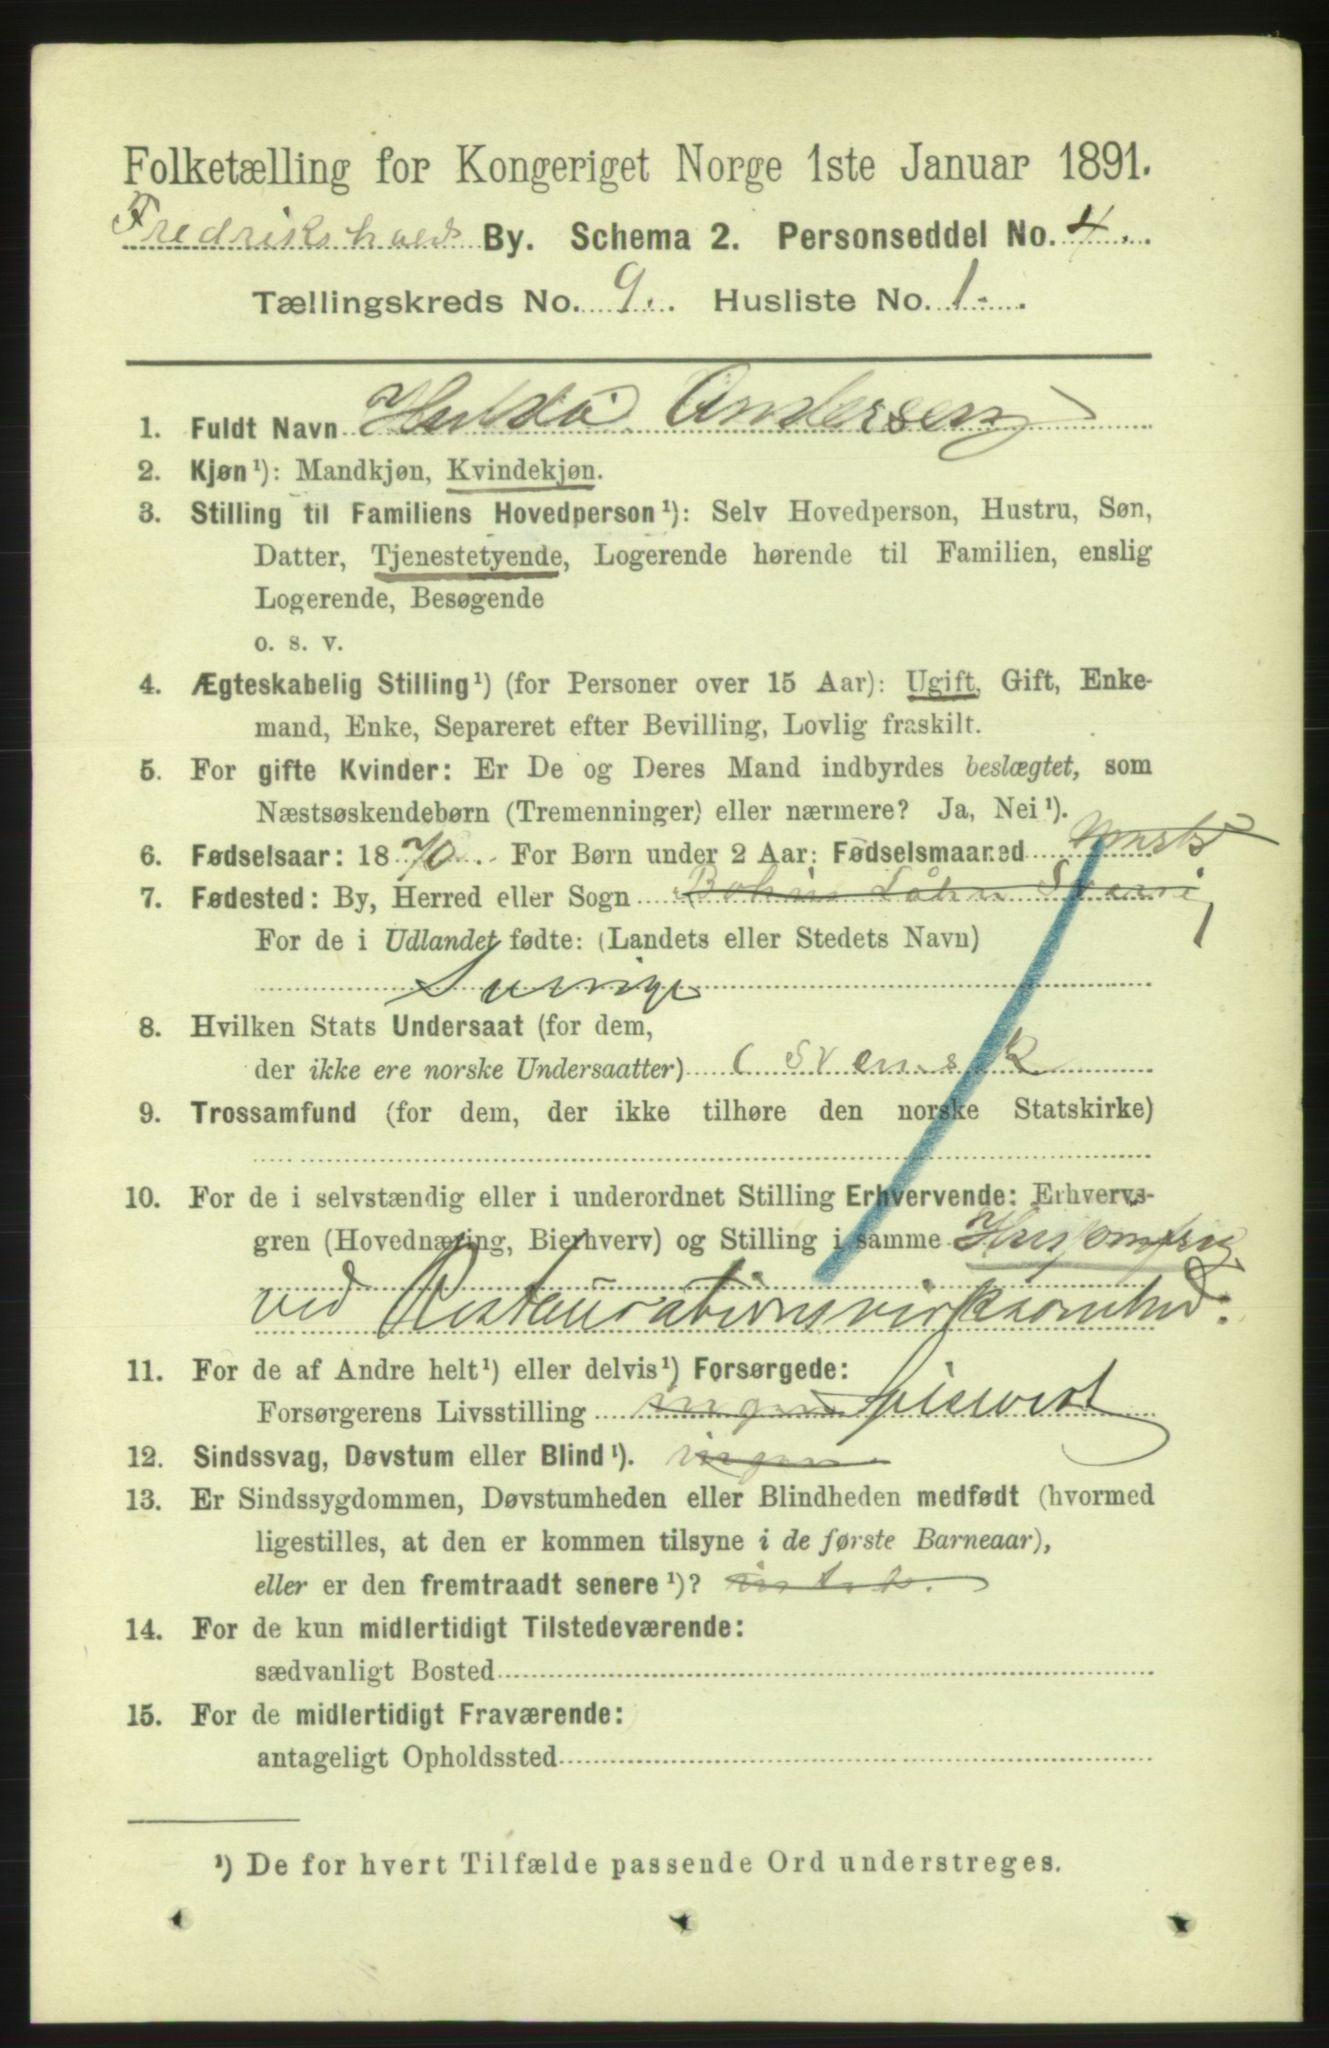 Folketælling for Kongeriget Norge 1ste Januar 1891.
Fredrikshalds By. Schema 2. Personseddel No. 4.
Tællingskreds No. 9. Husliste No. 1.
1. Fuldt Navn Hulda Andersen
2. Kjøn¹): Mandkjøn, Kvindekjøn.
3. Stilling til Familiens Hovedperson¹): Selv Hovedperson, Hustru, Søn,
Datter, Tjenestetyende, Logerende hørende til Familien, enslig
Logerende, Besøgende
o. s. v.
4. Ægteskabelig Stilling¹) (for Personer over 15 Aar): Ugift, Gift, Enke-
mand, Enke, Separeret efter Bevilling, Lovlig fraskilt.
5. For gifte Kvinder: Er De og Deres Mand indbyrdes beslægtet, som
Næstsøskendebørn (Tremenninger) eller nærmere? Ja, Nei¹).
6. Fødselsaar: 1870. For Børn under 2 Aar: Fødselsmaaned
7. Fødested: By, Herred eller Sogn Bohus Låhn
For de i Udlandet fødte: (Landets eller Stedets Navn)
Sverige
8. Hvilken Stats Undersaat (for dem,
der ikke ere norske Undersaatter) (Svensk
9. Trossamfund (for dem, der ikke tilhøre den norske Statskirke)
10. For de i selvstændig eller i underordnet Stilling Erhvervende: Erhvervs-
gren (Hovednæring, Bierhverv) og Stilling i samme Husjomfru
ved Restaurationsvirksomhed.
11. For de af Andre helt¹) eller delvis¹) Forsørgede:
Forsørgerens Livsstilling ingen Spisevert
12. Sindssvag, Døvstum eller Blind¹). ingen
13. Er Sindssygdommen, Døvstumheden eller Blindheden medfødt (hvormed
ligestilles, at den er kommen tilsyne i de første Barneaar),
eller er den fremtraadt senere¹)?
14. For de kun midlertidigt Tilstedeværende:
sædvanligt Bosted
15. For de midlertidigt Fraværende:
antageligt Opholdssted
¹) De for hvert Tilfælde passende Ord understreges.